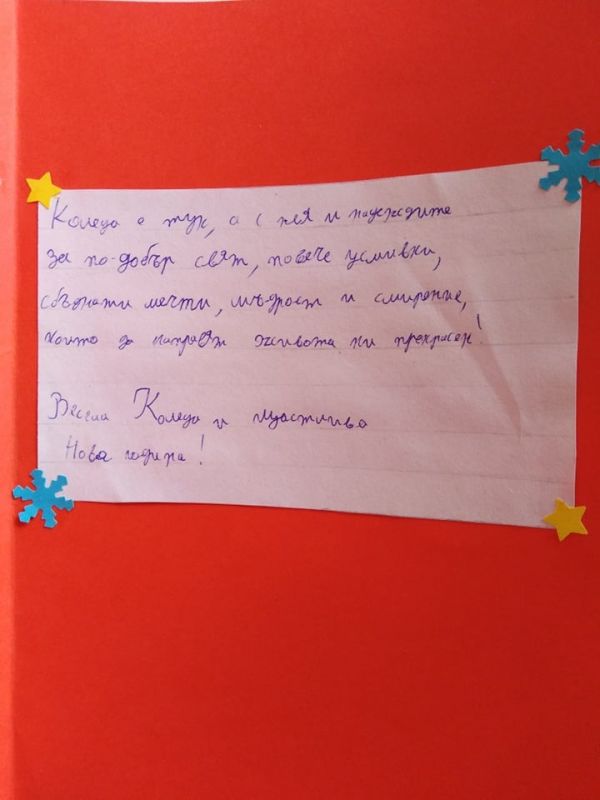 Коледа е тук, а с нея и надеждите
за по-добър свят, повече усмивки,
сбъднати мечти, мъдрост и смирение,
които да направят живота ни прекрасен!
Весела Коледа и щастлива
Нова година!